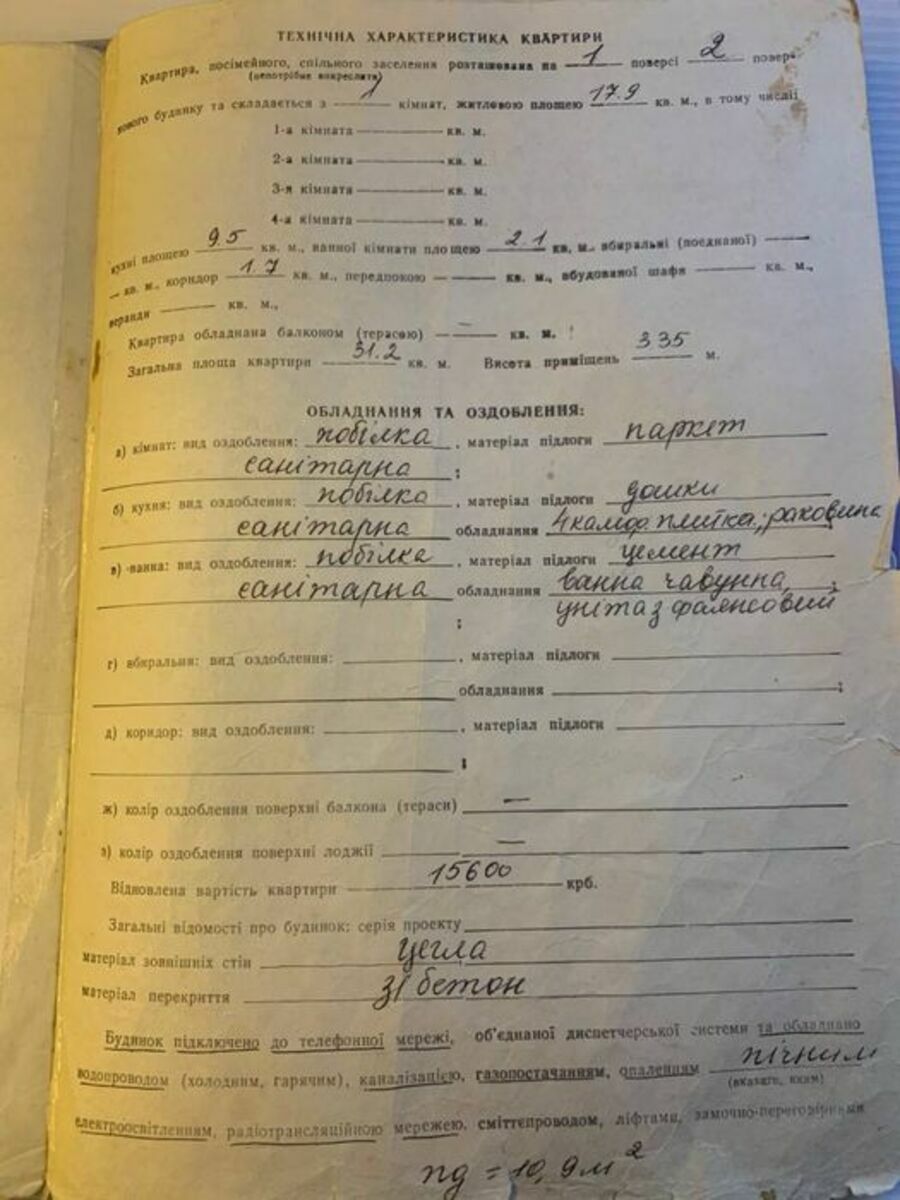 ТЕХНІЧНА ХАРАКТЕРИСТИКА КВАРТИРИ
Квартира, посімейного, спільного заселення розташована на 1 поверсі 2 повер-
(непотрібне викреслити)
хового будинку та складається з 1 кімнат, житловою площею 17.9 кв. м., в тому числі
1-а кімната кв. м.
2-а кімната кв. м.
3-я кімната кв. м.
4-а кімната кв. м.
кухні площею 9.5 кв. м., ванної кімнати площею 2.1 кв, м. вбиральні (поєднаної) —
— кв. м., коридор 1.7 кв. м., передпокою — кв. м., вбудованої шафи — кв. м.,
веранди — кв. м.,
Квартира обладнана балконом (терасою) — кв. м.
Загальна площа квартири 31.2 кв. м. Висота приміщень 335 м.
ОБЛАДНАННЯ ТА ОЗДОБЛЕННЯ:
а) кімнат: вид оздоблення: побілка, матеріал підлоги паркет
санітарна ;
б) кухня: вид оздоблення: побілка, матеріал підлоги дошки
санітарна обладнання 4 камф. плитка; раковина
в) ванна: вид оздоблення: побілка, матеріал підлоги цемент
санітарна обладнання ванна чавунна, ;
; унітаз фаянсовий
г) вбиральня: вид оздоблення: , матеріал підлоги
обладнання ;
д) коридор: вид оздоблення: , матеріал підлоги
;
ж) колір оздоблення поверхні балкона (тераси) —
з) колір оздоблення поверхні лоджії —
Відновлена вартість квартири 15600 крб.
Загальні відомості про будинок: серія проекту
матеріал зовнішніх стін цегла
матеріал перекриття з/бетон
Будинок підключено до телефонної мережі, об'єднаної диспетчерської системи та обладнано
водопроводом (холодним, гарячим), каналізацією, газопостачанням, опаленням пічним
(вказати, яким)
електроосвітленням, радіотрансляційною мережею, сміттєпроводом, ліфтами, замочно-переговірними
пд = 10,9 м²